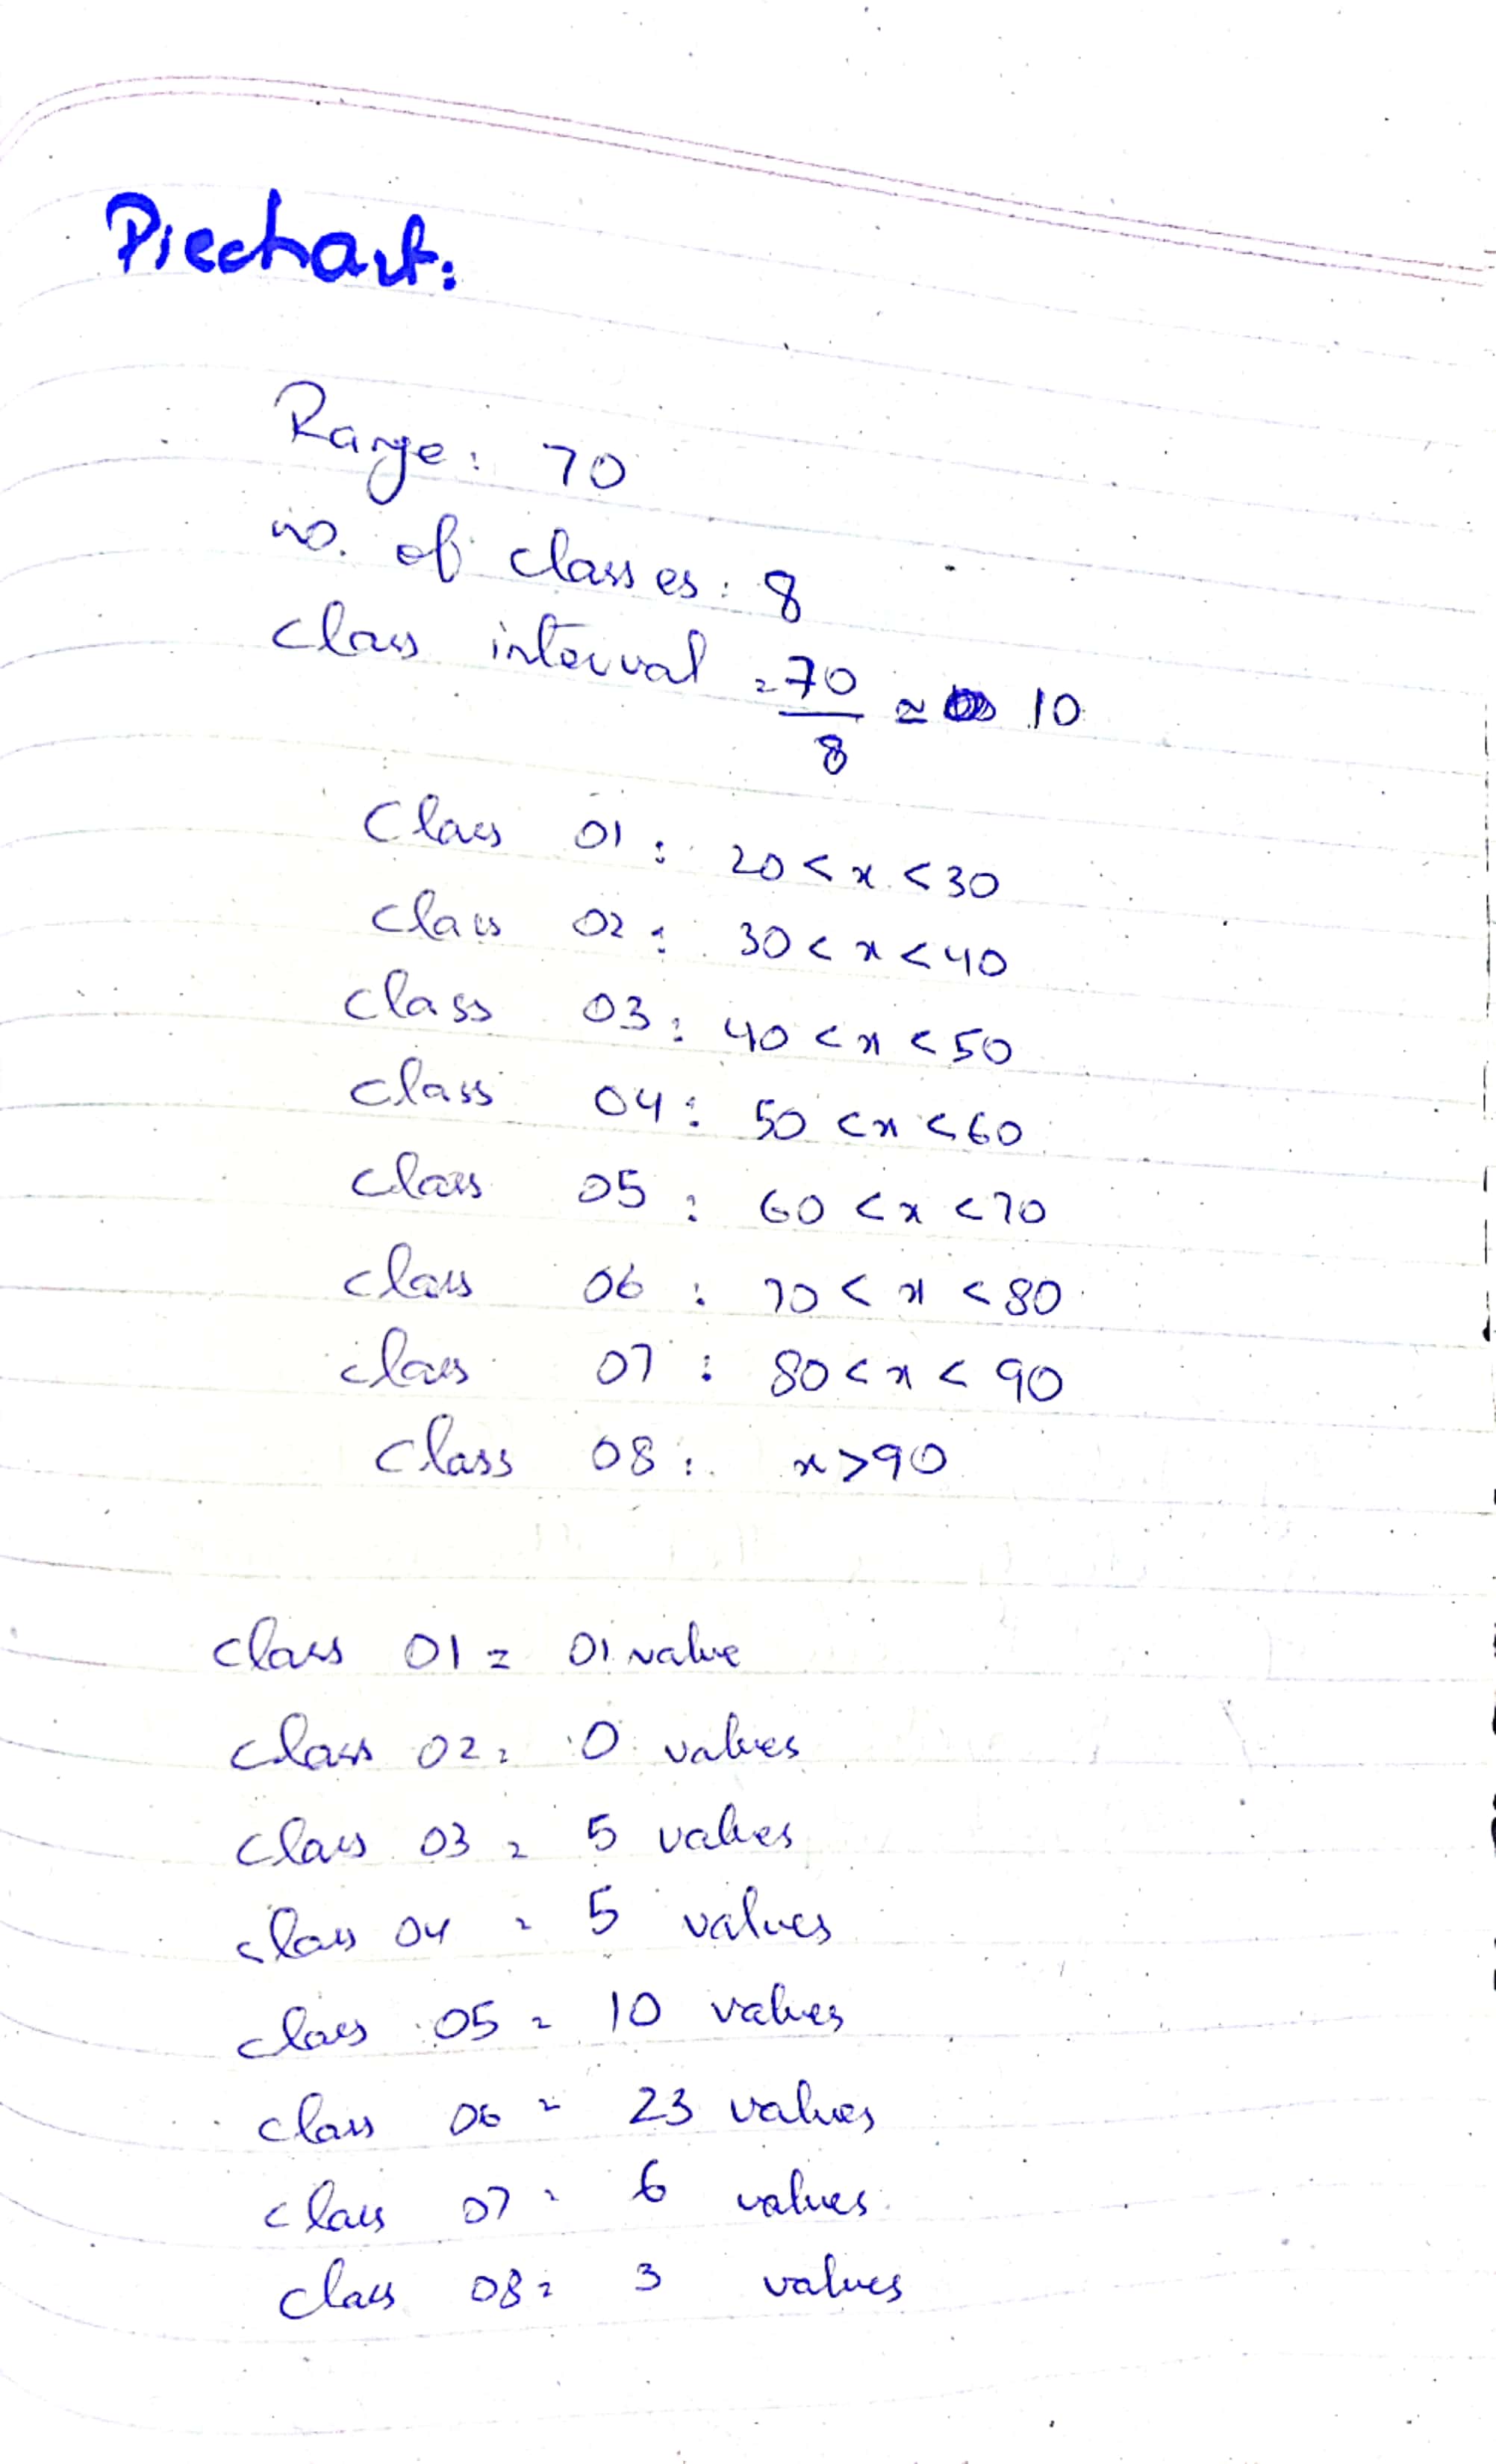 Piechart:
Range: 70
no. of classes: 8
class interval = 70/8 ≈ 10
Class 01: 20 < x < 30
class 02: 30 < x < 40
class 03: 40 < x < 50
class 04: 50 < x < 60
class 05: 60 < x < 70
class 06: 70 < x < 80
class 07: 80 < x < 90
class 08: x > 90
class 01 = 01 value
class 02 = 0 values
class 03 = 5 values
class 04 = 5 values
class 05 = 10 values
class 06 = 23 values
class 07 = 6 values
class 08 = 3 values